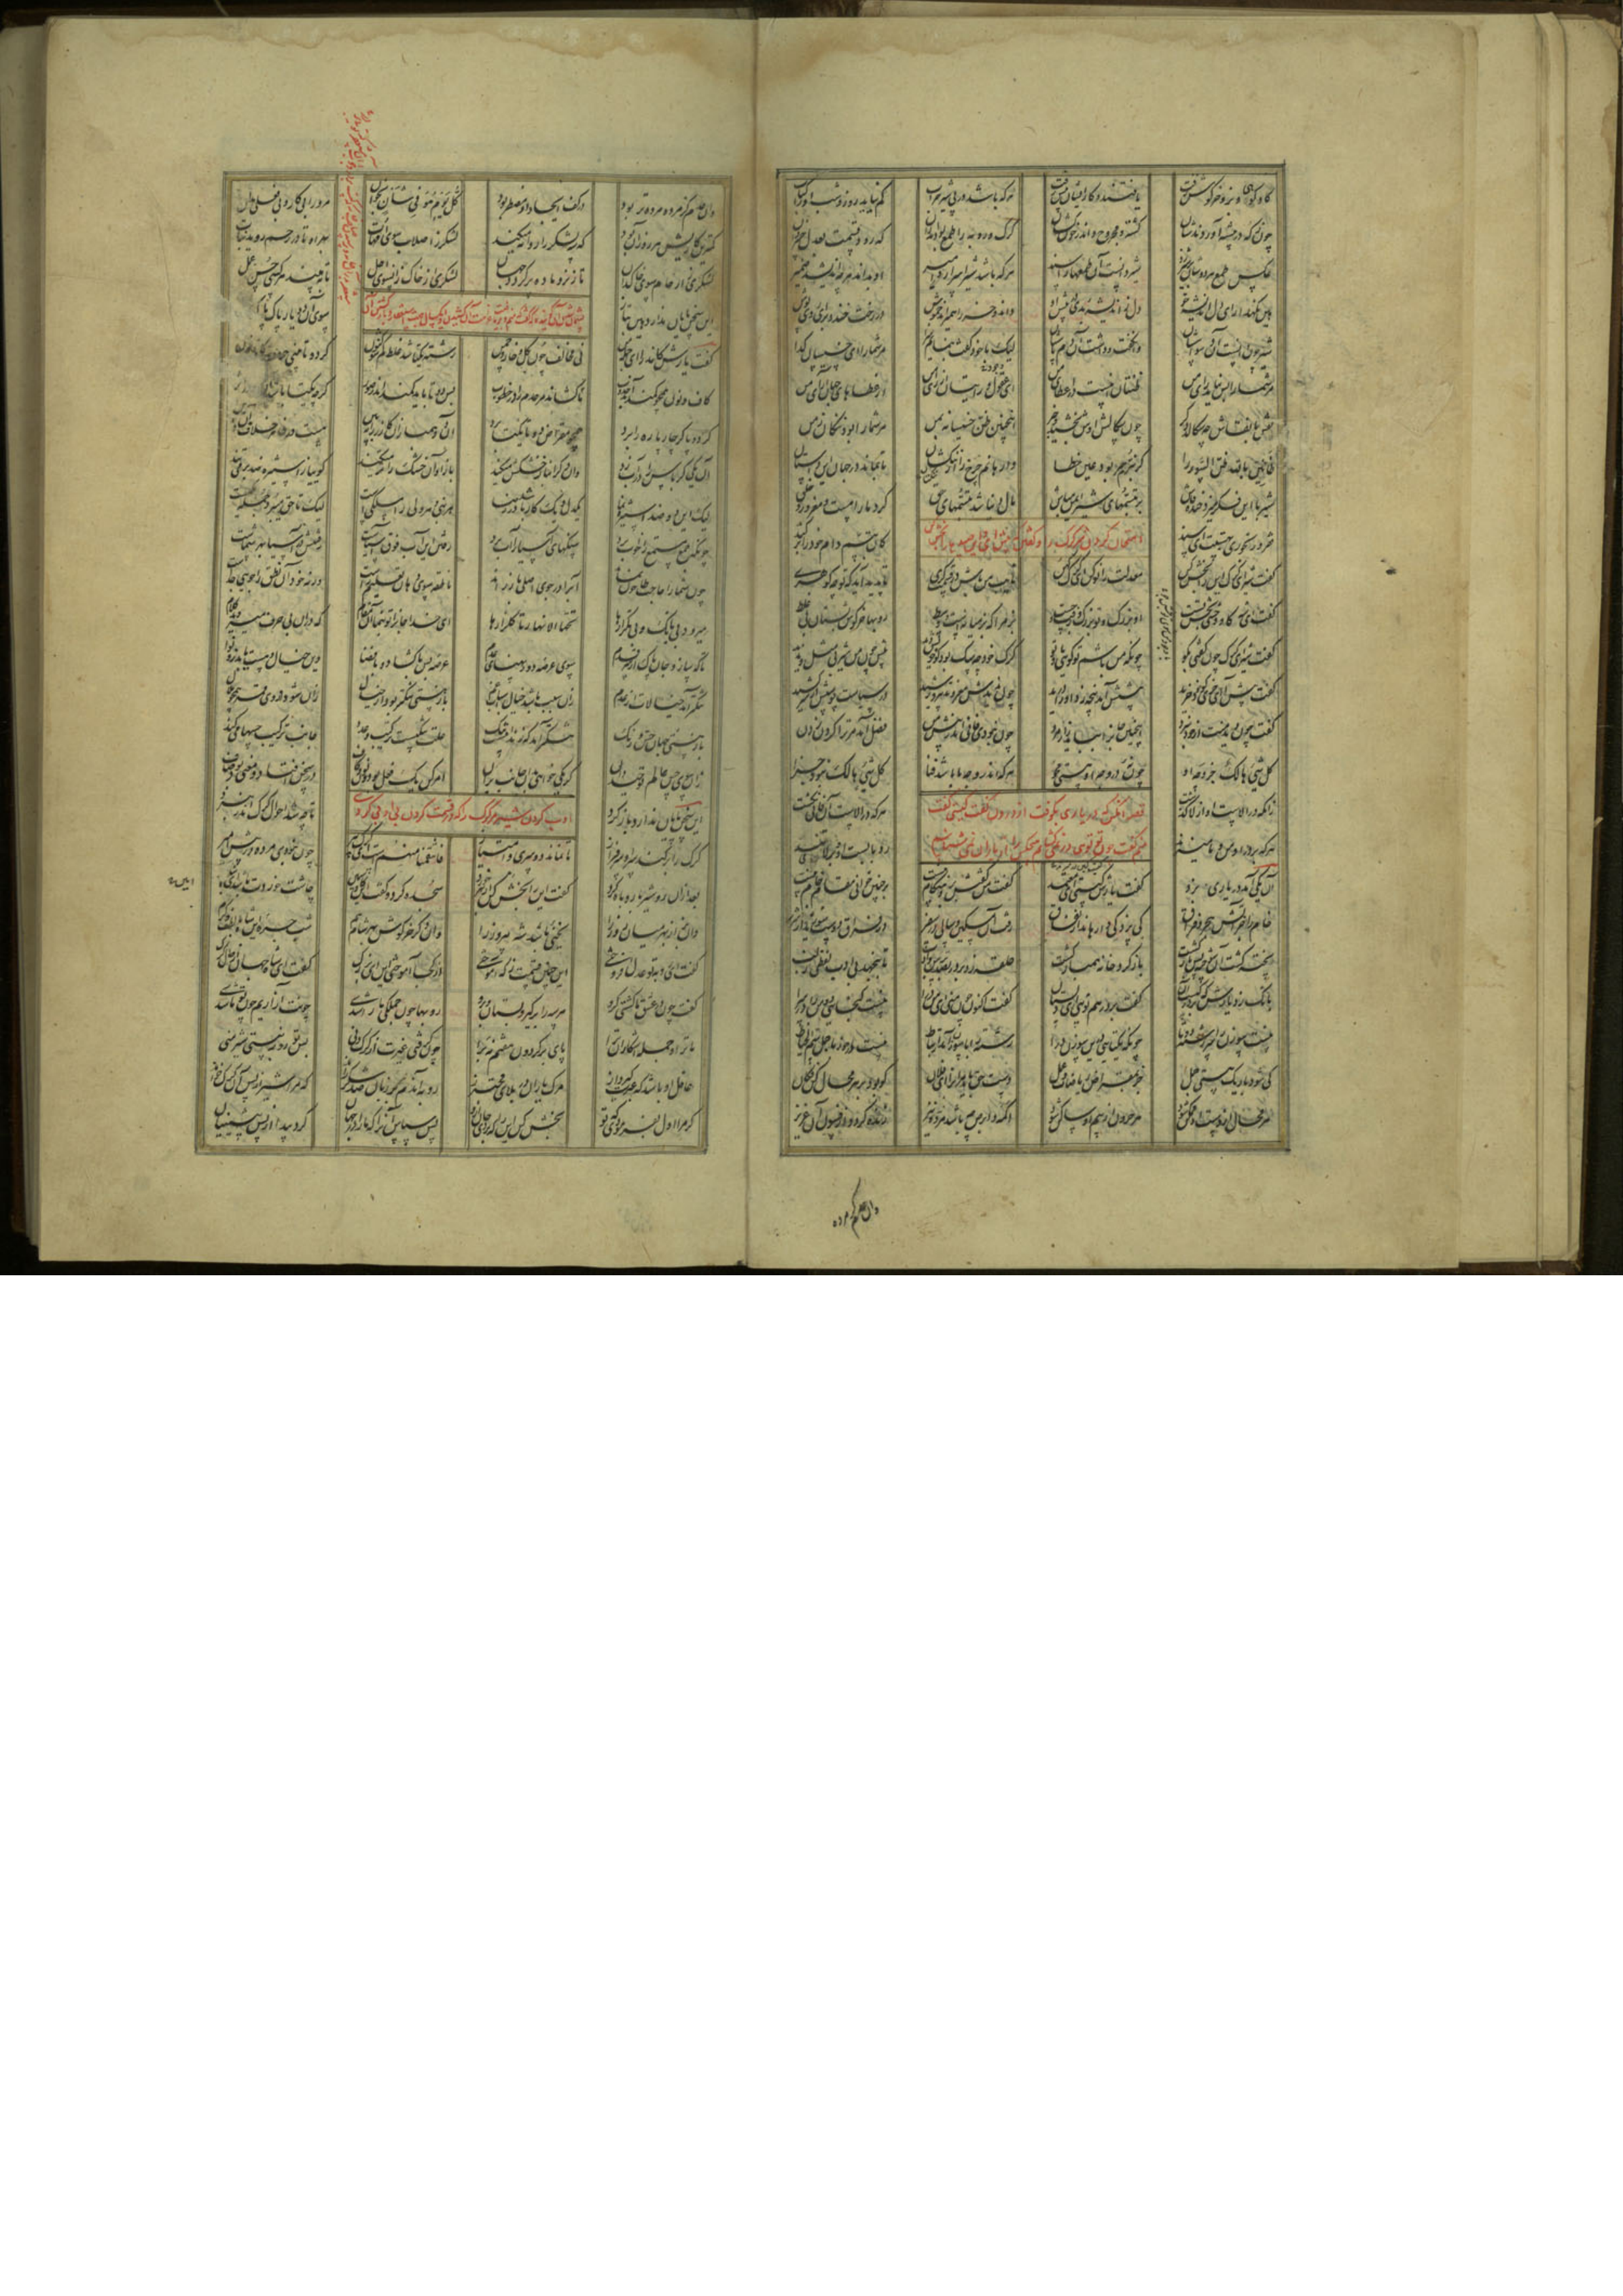 گاو کوهی و بز و خرگوش زفت یافتند و کار ایشان پیش رفت هر که باشد در پی شیر حراب کم نیاید روز و شب او را کباب
چون که در بیشه آوردندشان کشته و مجروح و اندر خون کشان گرگ و روبه را طمع بود اندران که رود قسمت بعدل خسروان
عکس طمع هر دوشان بر شیر زد شیر دانست آن طمعها را سند هر که باشد شیر اسرار و امیر او بداند هر چه اندیشد ضمیر
هین نگهدار ای دل اندیشه خو دل ز اندیشه بدی در پیش او داند و خر را همی راند خموش در رخت خندد برای روی پوش
شیر چون دانست آن وسواسشان وانگفت و داشت آن دم پاسشان لیک با خود گفت بنمایم سزا مر شما را ای خسیسان گدا
مر شما را بس نیامد رای من ظنتان اینست در اعطای من ای عقول و رایتان از رای من از عطاهای جهان آرای من
نقش با نقاش چه سگالد دگر چون سگالش اوش بخشید و خبر اینچنین ظن خسیسانه بمن مر شما را بود ننگان زمن
ظانین بالله ظن السوء را گر نبرم سر بود عین خطا وارهانم چرخ را از ننگتان تا بماند در جهان این داستان
شیر با این فکر میزد خنده فاش بر تبسمهای شیر ایمن مباش مال دنیا شد تبسمهای حق کرد ما را مست و مغرور و خلق
فقر و رنجوری بهستت ای سند کان تبسم دام خود را بر کند
امتحان کردن شیر گرگ را و گفتن که پیش آی ای گرگ صید را بخش کن
گفت شیر ای گرگ این را بخش کن معدلت را نو کن ای گرگ کهن نایب من باش در قسمت گری تا پدید آید که تو چه گوهری
گفت ای شه گاو وحشی بخش تست او بزرگ و تو بزرگ و زفت و چست بز مرا که بز میانه است و وسط روبها خرگوش بستان بی غلط
گفت شیر ای گرگ چون گفتی بگو چونکه من باشم تو گویی ما و تو گرگ خود چه سگ بود کو خویش دید پیش چون من شیر بی مثل و ندید
گفت پیش آ ای خری کو خود خرید پیشش آمد پنجه زد او را درید چون ندیدش مغز و تدبیر رشید در سیاست پوستش از سر کشید
گفت چون دید منت از خود نبرد اینچنین جان را بباید زار مرد چون نبودی فانی اندر پیش من فضل آمد مر ترا گردن زدن
کل شیء هالک جز وجه او چون نه در وجه او هستی مجو هر که اندر وجه ما باشد فنا کل شیء هالک نبود جزا
زانکه در الاست او از لا گذشت هر که در الاست او فانی نگشت
هر که بر در او من و ما میزند رد بابست او و بر لا می تند
قصه آنکس که در یاری بکوفت از درون گفت کیستی گفت
منم گفت چون تو توی در نمی گشایم هیچکس را از یاران نمی شناسم
آن یکی آمد در یاری بزد گفت یارش کیستی ای معتمد گفت من گفتش برو هنگام نیست بر چنین خوانی مقام خام نیست
خام را جز آتش هجر و فراق کی پزد کی وارهاند از نفاق رفت آن مسکین و سالی در سفر در فراق دوست سوزید از شرر
پخته گشت آن سوخته پس باز گشت باز گرد خانه همباز گشت حلقه زد بر در بصد ترس و ادب تا بنجهد بی ادب لفظی ز لب
بانگ زد یارش که بر در کیست آن گفت بر در هم توی ای دلستان گفت اکنون چون منی ای من درآ نیست گنجایی دو من در یک سرا
نیست سوزن را سر رشته دو تا چونکه یکتایی درین سوزن درا رشته را با سوزن آمد ارتباط نیست در خور با جمل سم الخیاط
کی شود باریک هستی جمل جز بمقراض ریاضات و عمل دست حق باید مر آنرا ای فلان کو بود بر هر محالی کن فکان
هر محال از دست او ممکن شود هر حرون از بیم او ساکن شود اکمه و ابرص چه باشد مرده نیز زنده گردد از فسون آن عزیز
وان عدم کز مرده
وان عدم کز مرده مرده تر بود در کف ایجاد او مضطر بود کل یوم هو فی شان بخوان مرو را بی کار و بی فعلی مدان
کمترین کاریش هر روز آن بود که سه لشکر را روانه میکند لشکری ز اصلاب سوی امهات بهر آن تا در رحم روید نبات
لشکری ز ارحام سوی خاکدان تا ز نر و ماده پر گردد جهان لشکری از خاک زان سوی اجل تا ببیند هر کسی حسن عمل
این سخن پایان ندارد هین بتاز سوی آن دو یار پاک پاک
گفت یارش کاندرا ای جمله من نی مخالف چون گل و خار چمن رشته یکتا شد غلط کم شو کنون گر دو تا بینی حروف کاف و نون
کاف و نون همچون کمند آمد جذوب تا کشاند مر عدم را در خطوب پس دوتا باید کمند اندر صور گرچه یکتا باشد
گر دو پا گر چار پا ره را برد همچو مقراض دو تا یکتا برد آن دو همبازان گازر را ببین هست در ظاهر خلافی
آن یکی کرباس را در آب زد وان دگر همباز خشکش میکند باز او آن خشک را تر میکند گوییا ز استیزه ضد بر می تند
لیک این دو ضد استیزه نما یکدل و یک کار باشد در رضا هر نبی و هر ولی را مسلکیست لیک تا حق میبرد جمله یکیست
چونکه جمع مستمع را خواب برد سنگهای آسیا را آب برد رفتن این آب فوق آسیاست رفتنش در آسیا بهر شماست
چون شما را حاجت طاحون نماند آبرا در جوی اصلی باز راند ناطقه سوی دهان تعلیم راست ورنه خود آن نطق را جویی جداست
میرود بی بانگ و بی تکرارها تحتها الانهار تا گلزارها ای خدا جانرا تو بنما آن مقام که دران بی حرف میروید کلام
تا که سازد جان پاک از سر قدم سوی عرصه دور پهنای عدم عرصه بس با گشاد و با فضا وین خیال و هست یابد زو نوا
تنگتر آمد خیالات از عدم زان سبب باشد خیال اسباب غم باز هستی تنگتر بود از خیال زان شود در وی قمر همچون هلال
باز هستی جهان حس و رنگ تنگتر آمد که زندانیست تنگ علت تنگیست ترکیب و عدد جانب ترکیب حسها میکشد
زان سوی حس عالم توحید دان گر یکی خواهی بدان جانب بران امر کن یک فعل بود و نون و کاف در سخن افتاد و معنی بود صاف
این سخن پایان ندارد باز گرد تا چه شد احوال گرگ اندر نبرد
ادب کردن شیر مر گرگ را که در قسمت کردن بی ادبی کرد
گرگ را بر کند سر آن سرفراز تا نماند دو سری و امتیاز فانتقمنا منهم است ای گرگ پیر چون نبودی مرده در پیش میر
بعد از آن رو شیر با روباه کرد گفت این را بخش کن از بهر خورد سجده کرد و گفت کین گاو سمین چاشت خوردت باشد ای شاه گزین
وان بز از بهر میان روز را یخنیی باشد شه پیروز را وان دگر خرگوش بهر شام هم شب چره این شاه با لطف و کرم
گفت ای روبه تو عدل افروختی این چنین قسمت ز که آموختی از کجا آموختی این ای بزرگ گفت ای شاه جهان از حال گرگ
گفت چون در عشق ما گشتی گرو هر سه را برگیر و بستان و برو روبها چون جملگی ما را شدی چونت آزاریم چون تو ما شدی
ما ترا و جمله اشکاران ترا پای بر گردون هفتم نه برا چون گرفتی عبرت از گرگ دنی پس تو روبه نیستی شیر منی
عاقل او باشد که عبرت گیرد از مرگ یاران در بلای محترز روبه آندم بر زبان صد شکر راند که مرا شیر از پس آن گرگ خواند
گر مرا اول بفرمودی که تو بخش کن این را که بردی جان ازو پس سپاس او را که ما را در جهان کرد پیدا از پس پیشینیان